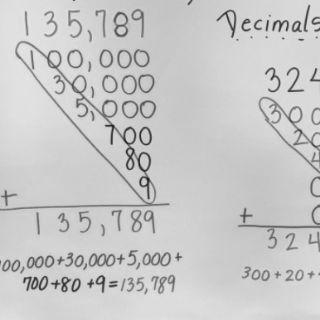 135,789
100,000
30,000
5,000
700
80
9
+
135,789
100,000+30,000+5,000+
700+80+9=135,789
Decimals
324
300
20
4
0
+ 0
324
300+20+